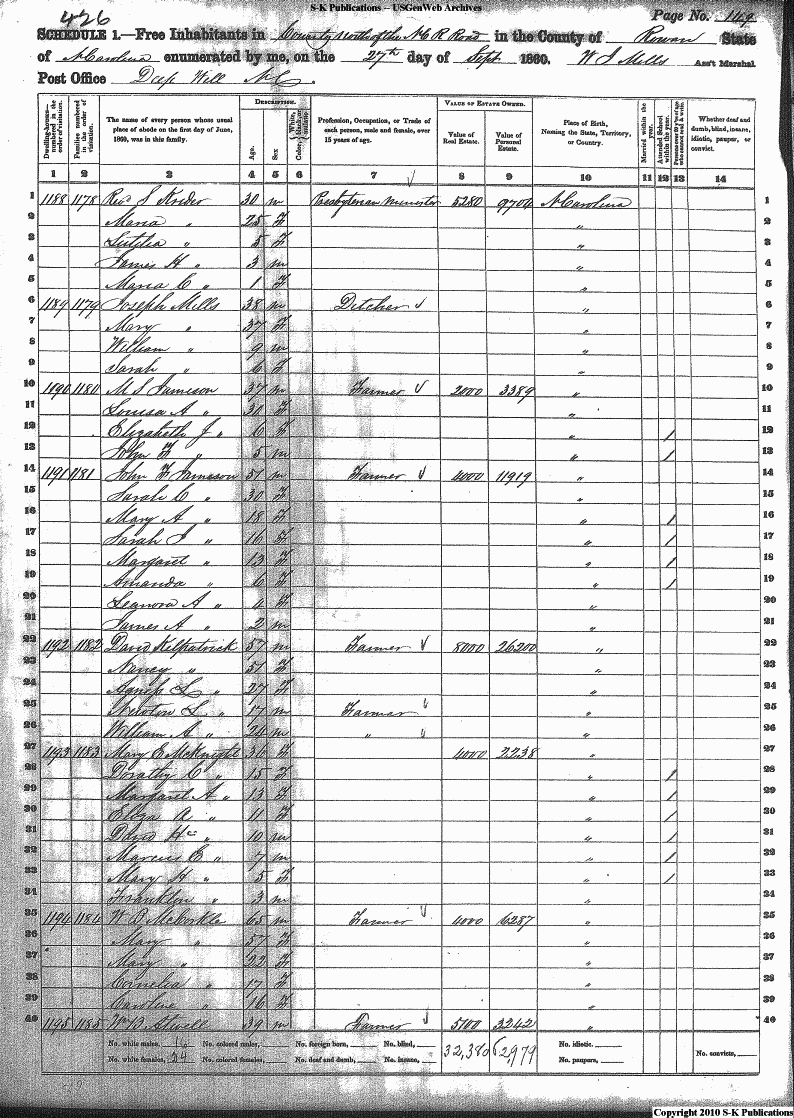 S-K Publications – USGenWeb Archives
426
Page No. 149
SCHEDULE 1.—Free Inhabitants in County north of the N C R Road in the County of Rowan State
of N Carolina enumerated by me, on the 27th day of Sept 1860. W J Mills Ass't Marshal
Post Office Deep Well N C.
Dwelling-houses—numbered in the order of visitation.
Families numbered in the order of visitation.
The name of every person whose usual place of abode on the first day of June, 1860, was in this family.
DESCRIPTION.
Age.
Sex
White, black, or mulatto.
Color,
Profession, Occupation, or Trade of each person, male and female, over 15 years of age.
VALUE OF ESTATE OWNED.
Value of Real Estate.
Value of Personal Estate.
Place of Birth, Naming the State, Territory, or Country.
Married within the year.
Attended School within the year.
Whether deaf and dumb, blind, insane, idiotic, pauper, or convict.
1 2 3 4 5 6 7 8 9 10 11 12 13 14
1 1188 1178 Rev J Krider 30 m Presbyterian Minister 5280 9704 N Carolina 1
2 Maria " 25 F " 2
3 " 5 F " 3
4 James H " 3 m " 4
5 Maria C " 1 F " 5
6 1189 1179 Joseph Mills 38 m Ditcher " 6
7 Mary " 37 F " 7
8 William " 9 m " 8
9 Sarah " 6 F " 9
10 1190 1180 M S Jameson 37 m Farmer 2000 3389 " 10
11 Louisa A " 30 F " 11
12 Elizabeth J " 6 F " / 12
13 John F " 5 m " / 13
14 1191 1181 John F Jameson 51 m Farmer 4000 11919 " 14
15 Sarah C " 30 F " 15
16 Mary A " 18 F " / 16
17 Sarah J " 16 F " / 17
18 Margaret " 13 F " / 18
19 Amanda " 6 F " / 19
20 Leanora A " 4 F " 20
21 James A " 2 m " 21
22 1192 1182 David Kilpatrick 57 m Farmer 8000 26200 " 22
23 Nancy " 51 F " 23
24 Agness L " 27 F " 24
25 Newton L " 17 m Farmer " 25
26 William A " 24 m " " 26
27 1193 1183 Mary E McKnight 36 F 4000 2238 " 27
28 Dorothy C " 15 F " / 28
29 Margaret A " 13 F " / 29
30 Eliza A " 11 F " / 30
31 David Hc " 10 m " / 31
32 Marcus E " 7 m " / 32
33 Mary H " 5 F " / 33
34 Franklin " 3 m " 34
35 1194 1184 W B McCorkle 65 m Farmer 4000 6287 " 35
36 Mary " 57 F " 36
37 Mary " 22 F " 37
38 Cornelia " 17 F " 38
39 Caroline " 16 F " 39
40 1195 1185 Wm B Atwell 39 m Farmer 5100 3242 " 40
No. white males, 16 No. colored males, No. foreign born, No. blind, 32,380 62,979 No. idiotic.
No. white females, 24 No. colored females, No. deaf and dumb, No. insane, No. paupers, No. convicts,
Copyright 2010 S-K Publications